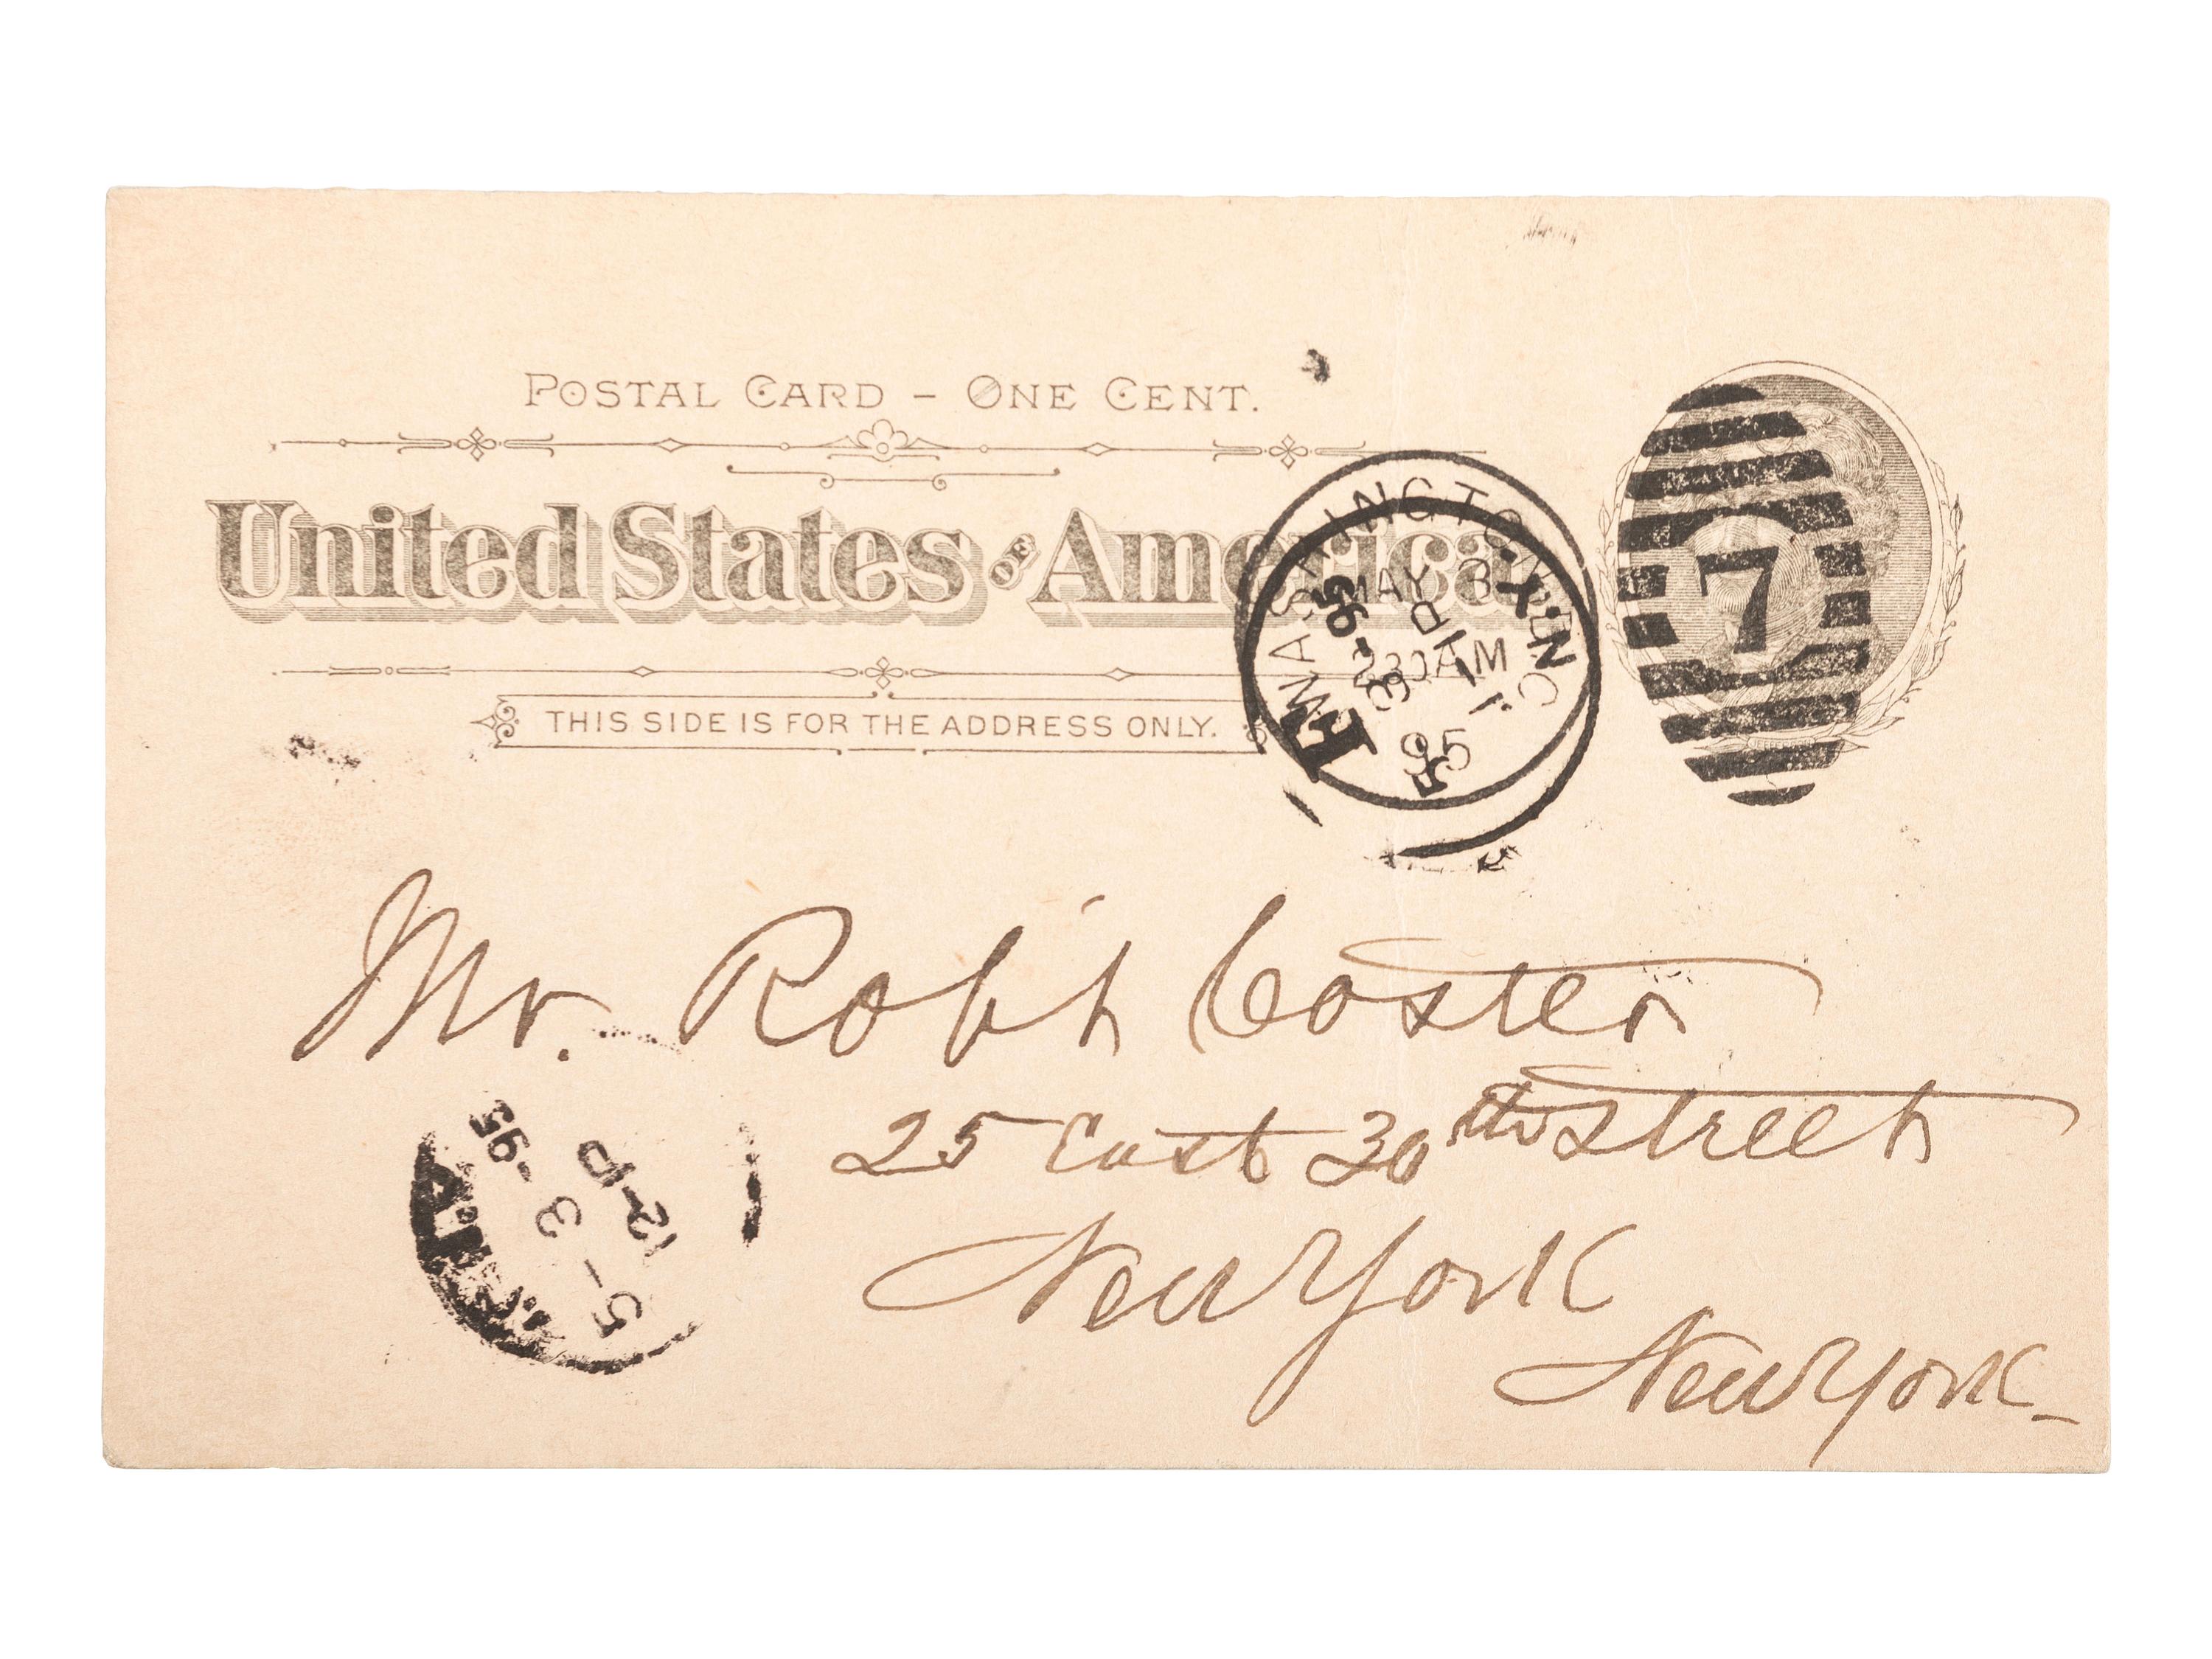 POSTAL CARD – ONE CENT.
United States OF America
THIS SIDE IS FOR THE ADDRESS ONLY.
WASHINGTON, D.C.
MAY 3
230AM
95
N.Y.
5-3-95
7
Mr. Rob't Coster
25 East 30th Street
New York
New York-
5-3-95
12-P